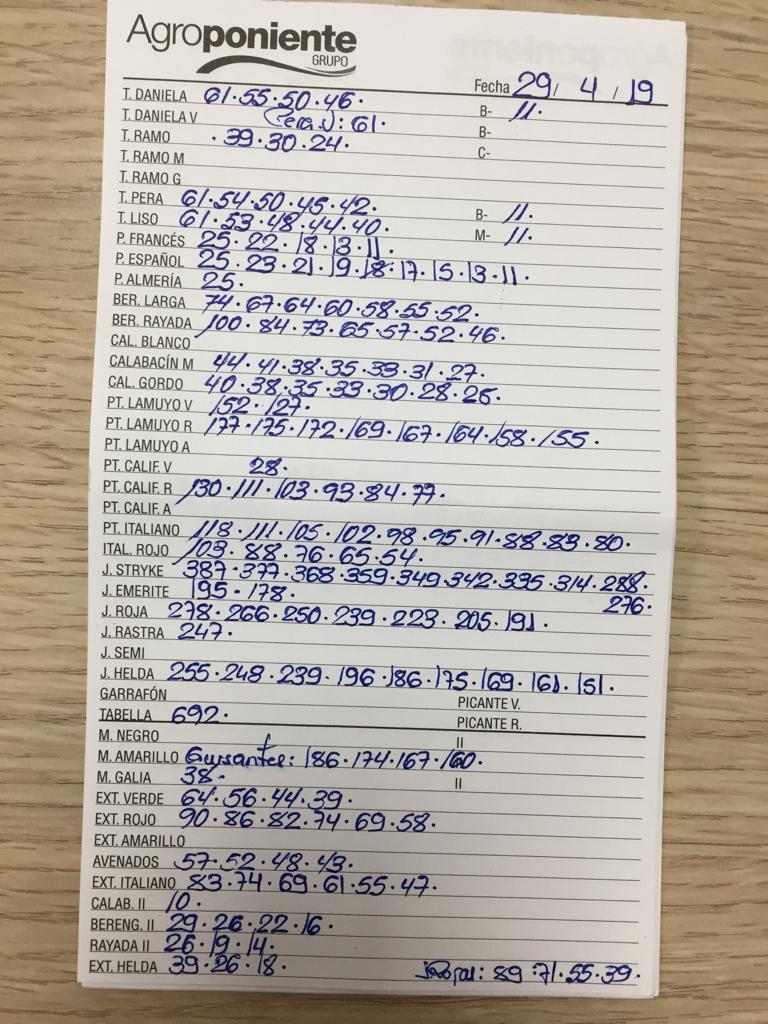 Agroponiente
GRUPO
Fecha 29/ 4 / 19
T. DANIELA 61·55·50·46· B- 11·
T. DANIELA V (Pera V): 61· B-
T. RAMO ·39·30·24· C-
T. RAMO M
T. RAMO G
T. PERA 61·54·50·45·42· B- 11·
T. LISO 61·53·48·44·40· M- 11·
P. FRANCÉS 25·22·18·13·11·
P. ESPAÑOL 25·23·21·19·18·17·15·13·11·
P. ALMERÍA 25·
BER. LARGA 74·67·64·60·58·55·52·
BER. RAYADA 100·84·73·65·57·52·46·
CAL. BLANCO
CALABACÍN M 44·41·38·35·33·31·27·
CAL. GORDO 40·38·35·33·30·28·26·
PT. LAMUYO V 152·127·
PT. LAMUYO R 177·175·172·169·167·164·158·155·
PT. LAMUYO A
PT. CALIF. V 28·
PT. CALIF. R 130·111·103·93·84·77·
PT. CALIF. A
PT. ITALIANO 118·111·105·102·98·95·91·88·83·80·
ITAL. ROJO 103·88·76·65·54·
J. STRYKE 387·377·368·359·349·342·335·314·288·
J. EMERITE 195·178· 276·
J. ROJA 278·266·250·239·223·205·191·
J. RASTRA 247·
J. SEMI
J. HELDA 255·248·239·196·186·175·169·161·151·
GARRAFÓN PICANTE V.
TABELLA 692· PICANTE R.
M. NEGRO II
M. AMARILLO Guisantes: 186·174·167·160·
M. GALIA 38· II
EXT. VERDE 64·56·44·39·
EXT. ROJO 90·86·82·74·69·58·
EXT. AMARILLO
AVENADOS 57·52·48·43·
EXT. ITALIANO 83·74·69·61·55·47·
CALAB. II 10·
BERENG. II 29·26·22·16·
RAYADA II 26·19·14·
EXT. HELDA 39·26·18· 89·71·55·39·